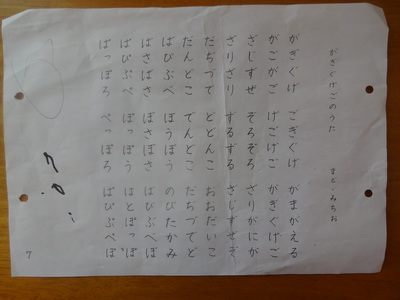 がぎぐげごのうた
まど・みちお
がぎぐげ ごぎぐげ がまがえる
がごがご げごげご がぎぐげご
ざじずぜ ぞろぞろ ざりがにが
ざりざり ずるずる ざじずぜぞ
だぢづで どどんこ おおだいこ
だんどこ でんどこ だぢづでど
ばびぶべ ぼうぼう のびたかみ
ばさばさ ぼさぼさ ばびぶべぼ
ぱぴぷぺ ぽっぽう はとぽっぽ
ぱっぽろ ぺっぽろ ぱぴぷぺぽ
7